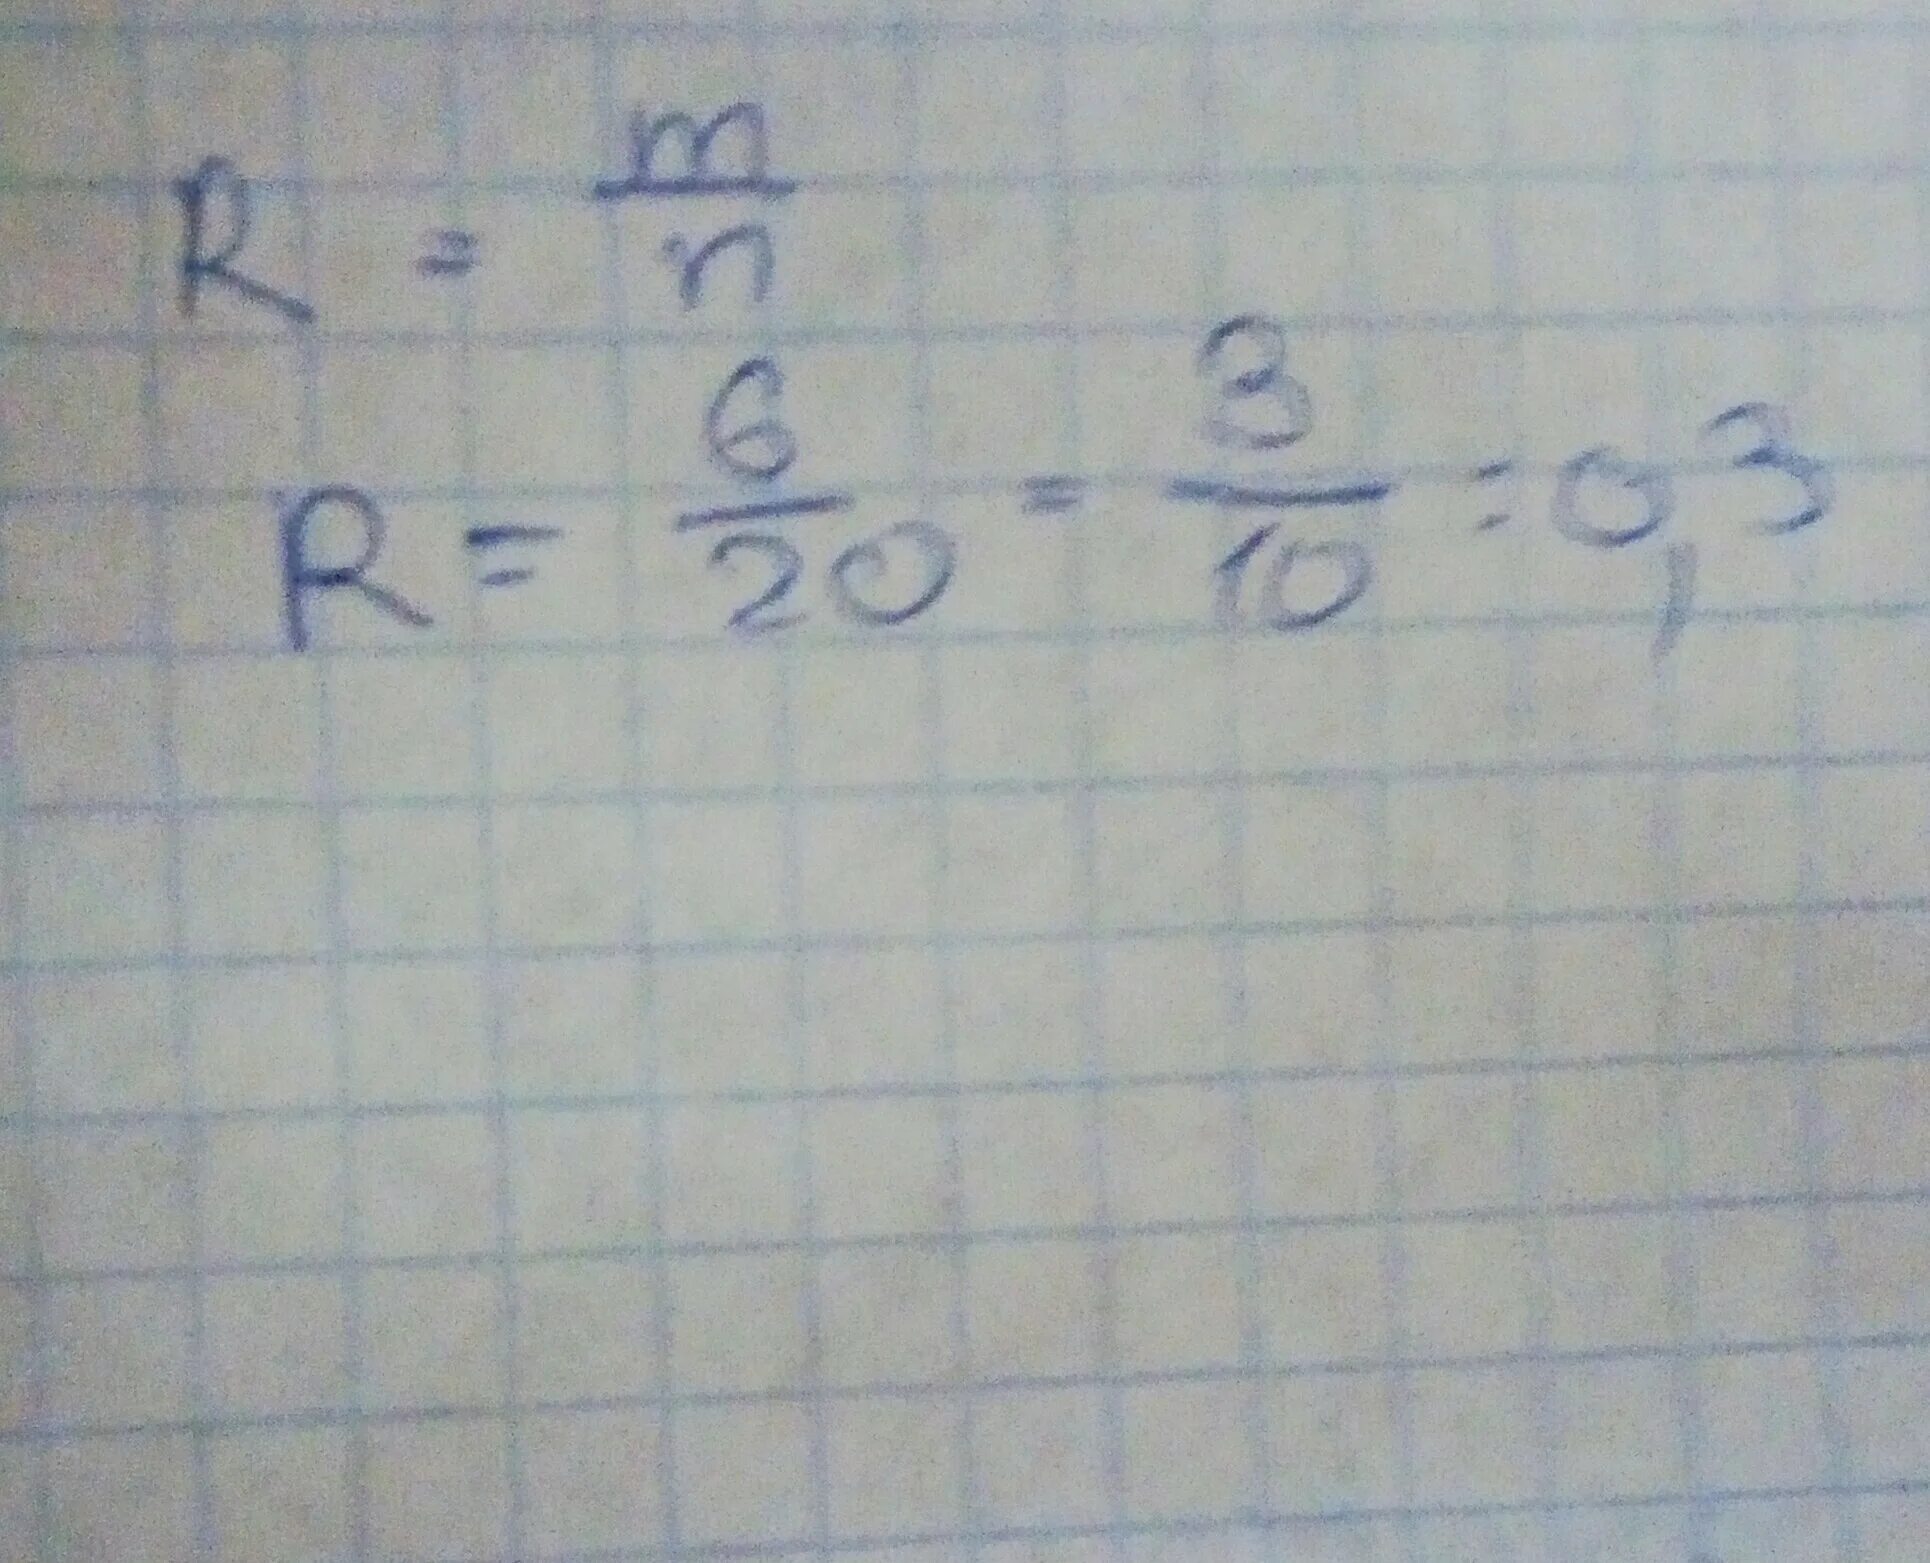 R = m/n
R = 6/20 = 3/10 = 0,3